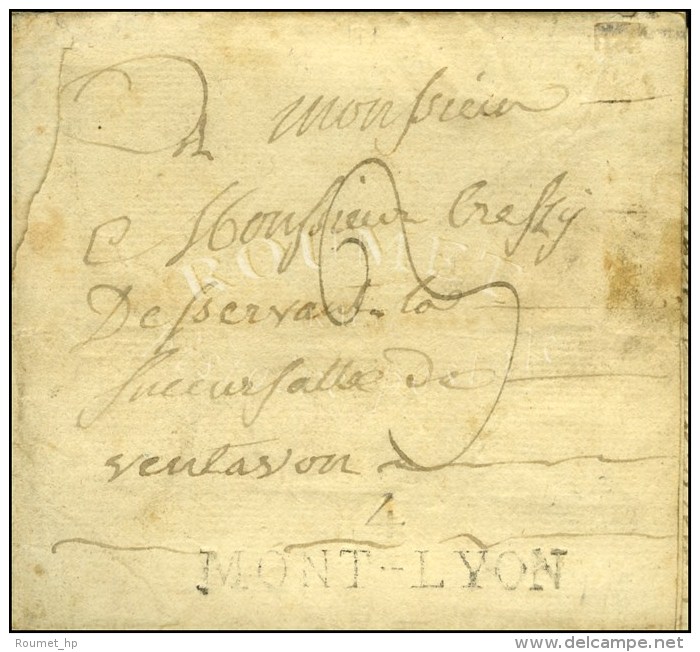 A Monsieur
Monsieur Cressy
Desservant la
Succursalle de
ventavon
4
MONT-LYON
ROUMET
Roumet_hp
www.delcampe.net